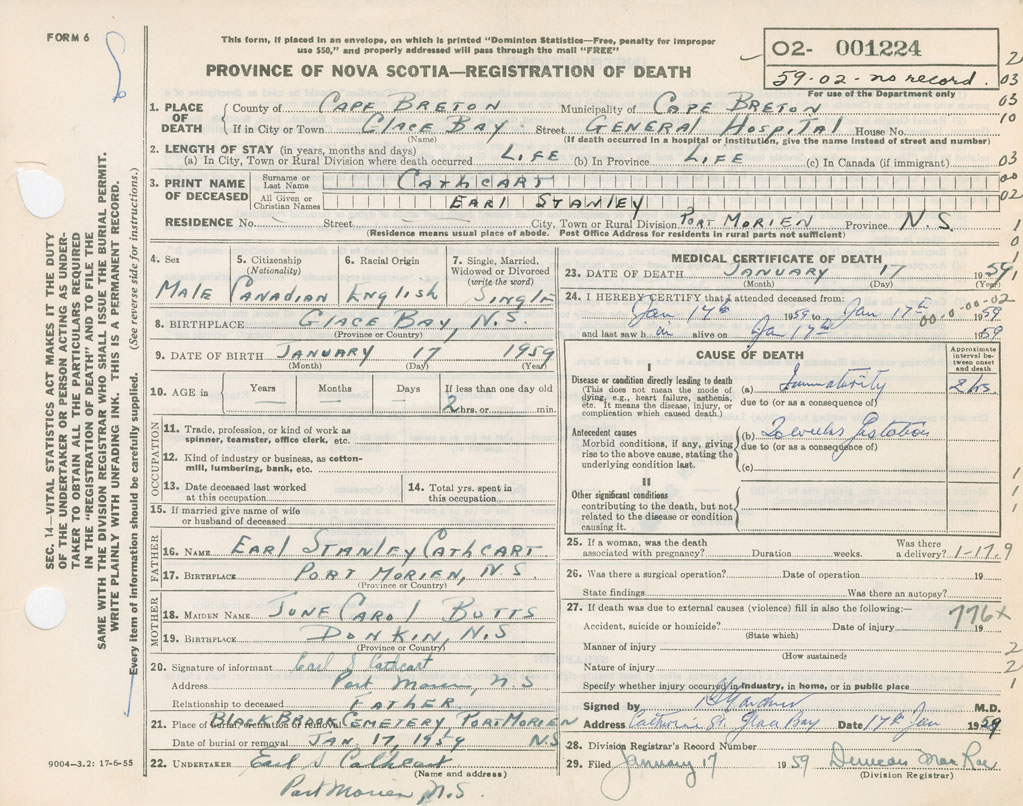 FORM 6
This form, if placed in an envelope, on which is printed "Dominion Statistics—Free, penalty for improper
use $50," and properly addressed will pass through the mail "FREE"
PROVINCE OF NOVA SCOTIA—REGISTRATION OF DEATH
02- 001224
59-02-no record.
For use of the Department only
1. PLACE OF DEATH
County of CAPE BRETON Municipality of CAPE BRETON
If in City or Town GLACE BAY Street GENERAL HOSPITAL House No.
(Name) (If death occurred in a hospital or institution, give the name instead of street and number)
2. LENGTH OF STAY (in years, months and days)
(a) In City, Town or Rural Division where death occurred LIFE (b) In Province LIFE (c) In Canada (if immigrant)
3. PRINT NAME OF DECEASED
Surname or Last Name CATHCART
All Given or Christian Names EARL STANLEY
RESIDENCE No. Street City, Town or Rural Division PORT MORIEN Province N.S.
(Residence means usual place of abode. Post Office Address for residents in rural parts not sufficient)
4. Sex 5. Citizenship (Nationality) 6. Racial Origin 7. Single, Married, Widowed or Divorced (write the word)
MALE CANADIAN ENGLISH SINGLE
8. BIRTHPLACE GLACE BAY, N.S.
(Province or Country)
9. DATE OF BIRTH JANUARY 17 1959
(Month) (Day) (Year)
10. AGE in Years Months Days If less than one day old
2 hrs. or min.
OCCUPATION
11. Trade, profession, or kind of work as
spinner, teamster, office clerk, etc.
12. Kind of industry or business, as cotten-
mill, lumbering, bank, etc.
13. Date deceased last worked
at this occupation
14. Total yrs. spent in
this occupation
15. If married give name of wife
or husband of deceased
FATHER
16. NAME EARL STANLEY CATHCART
17. BIRTHPLACE PORT MORIEN, N.S.
(Province or Country)
MOTHER
18. MAIDEN NAME JUNE CAROL BUTTS
19. BIRTHPLACE DONKIN, N.S
(Province or Country)
20. Signature of informant Earl S Cathcart
Address Port Morien, N.S
Relationship to deceased FATHER
21. Place of burial, cremation or removal BLACK BROOK CEMETERY PORT MORIEN
Date of burial or removal JAN 17, 1959 N.S
22. UNDERTAKER Earl S Cathcart
(Name and address)
Port Morien, N.S.
9004-3.2: 17-6-55
MEDICAL CERTIFICATE OF DEATH
23. DATE OF DEATH JANUARY 17 1959
(Month) (Day) (Year)
24. I HEREBY CERTIFY that I attended deceased from:
Jan 17th 1959 to Jan 17th 1959
00-00-00-02
and last saw him alive on Jan 17th 1959
CAUSE OF DEATH
Approximate interval between onset and death
I
Disease or condition directly leading to death
(This does not mean the mode of
dying, e.g., heart failure, asthenia,
etc. It means the disease, injury, or
complication which caused death.)
(a) Immaturity 2 hrs.
due to (or as a consequence of)
Antecedent causes
Morbid conditions, if any, giving
rise to the above cause, stating the
underlying condition last.
(b) 20 weeks Gestation
due to (or as a consequence of)
(c)
II
Other significant conditions
contributing to the death, but not
related to the disease or condition
causing it.
25. If a woman, was the death
associated with pregnancy? Duration weeks. Was there a delivery? 1-17.9
26. Was there a surgical operation? Date of operation 19
State findings Was there an autopsy?
27. If death was due to external causes (violence) fill in also the following:—
776x
Accident, suicide or homicide? Date of injury 19
(State which)
Manner of injury
(How sustained)
Nature of injury
Specify whether injury occurred in industry, in home, or in public place
Signed by M.D.
Address Catherine St. Glace Bay Date 17th Jan 1959
28. Division Registrar's Record Number
29. Filed January 17 1959 Duncan MacRae
(Division Registrar)
2
03
03
10
03
00
02
1
0
1
1
1
1
2
2
1
SEC. 14—VITAL STATISTICS ACT MAKES IT THE DUTY
OF THE UNDERTAKER OR PERSON ACTING AS UNDER-
TAKER TO OBTAIN ALL THE PARTICULARS REQUIRED
IN THE "REGISTRATION OF DEATH" AND TO FILE THE
SAME WITH THE DIVISION REGISTRAR WHO SHALL ISSUE THE BURIAL PERMIT.
WRITE PLAINLY WITH UNFADING INK. THIS IS A PERMANENT RECORD.
Every item of information should be carefully supplied. (See reverse side for instructions.)